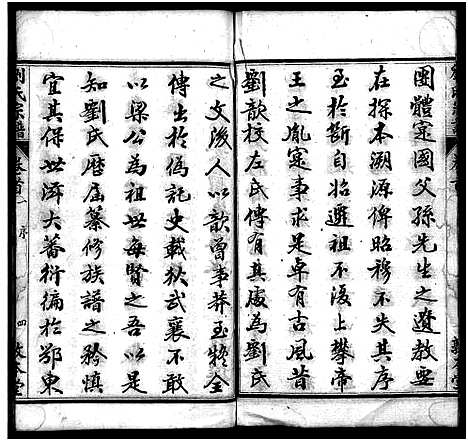 團體寔國父孫先生之遺教要
在探本溯源俾昭穆不失其序
至於斷自始遷祖不復上攀帝
王之胤寔事求是卓有古風昔
劉歆校左氏傳有其處為劉氏
之文後人以歆曾事莽至疑全
傳出於偽託史載狄武襄不敢
以梁公為祖世每賢之吾以是
知劉氏歷屆纂修族譜之矜慎
宜其保世滋大蕃衍徧於鄂東
劉氏宗譜
卷首一
序
四